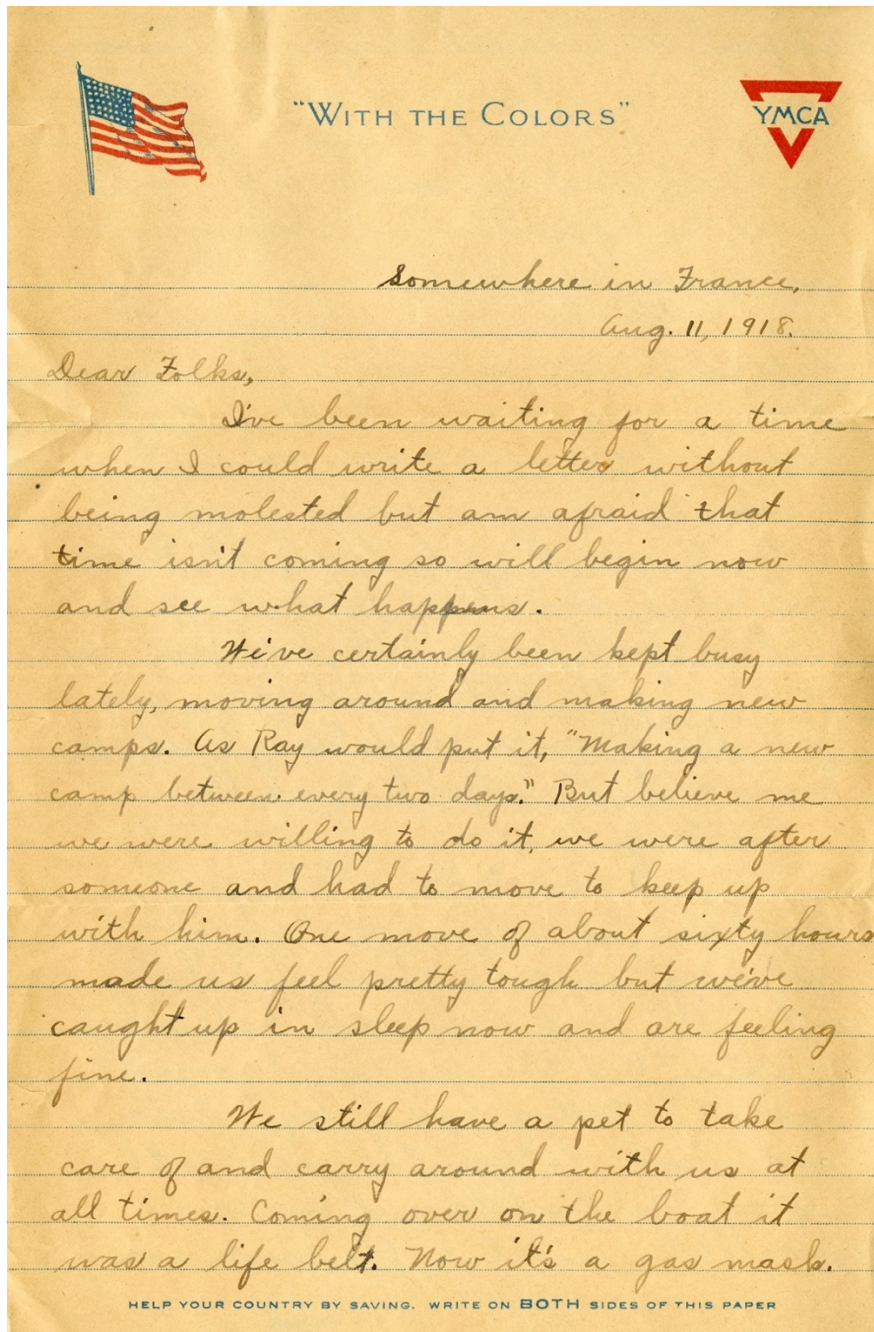 "WITH THE COLORS"
YMCA
Somewhere in France,
Aug. 11, 1918.
Dear Folks,
I've been waiting for a time
when I could write a letter without
being molested but am afraid that
time isn't coming so will begin now
and see what happens.
We've certainly been kept busy
lately, moving around and making new
camps. As Ray would put it, "Making a new
camp between every two days." But believe me
we were willing to do it, we were after
someone and had to move to keep up
with him. One move of about sixty hours
made us feel pretty tough but we've
caught up in sleep now and are feeling
fine.
We still have a pet to take
care of and carry around with us at
all times. Coming over on the boat it
was a life belt. Now it's a gas mask.
HELP YOUR COUNTRY BY SAVING. WRITE ON BOTH SIDES OF THIS PAPER